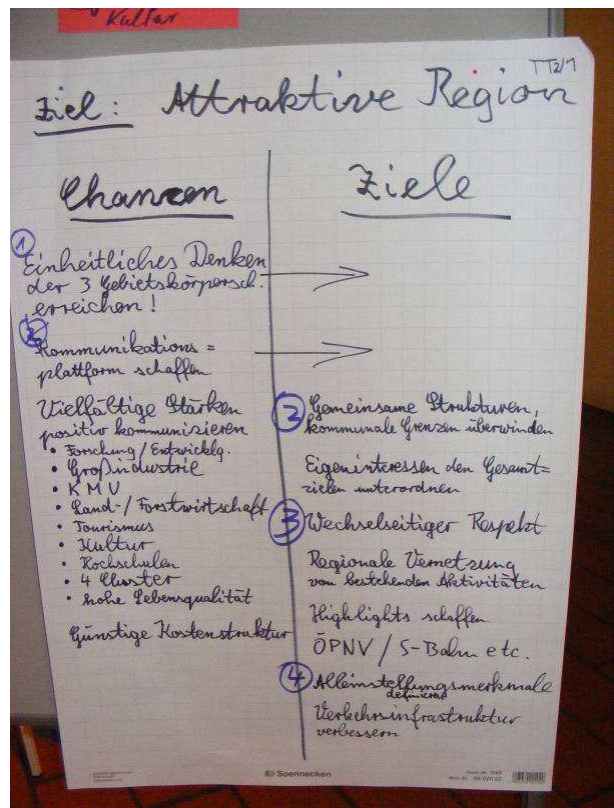 Kultur
TT2/1
Ziel: Attraktive Region
Chancen
①
Einheitliches Denken
der 3 Gebietskörpersch.
erreichen!
Kommunikations=
plattform schaffen
Vielfältige Stärken
positiv kommunizieren
• Forschung/Entwicklg.
• Großindustrie
• KMU
• Land-/Forstwirtschaft
• Tourismus
• Kultur
• Hochschulen
• 4 Cluster
• hohe Lebensqualität
Günstige Kostenstruktur
Ziele
② Gemeinsame Strukturen,
kommunale Grenzen überwinden
Eigeninteressen den Gesamt=
zielen unterordnen
③ Wechselseitiger Respekt
Regionale Vernetzung
von bestehenden Aktivitäten
Highlights schaffen
ÖPNV / S-Bahn etc.
④ Alleinstellungsmerkmale
definieren
Verkehrsinfrastruktur
verbessern
Soennecken